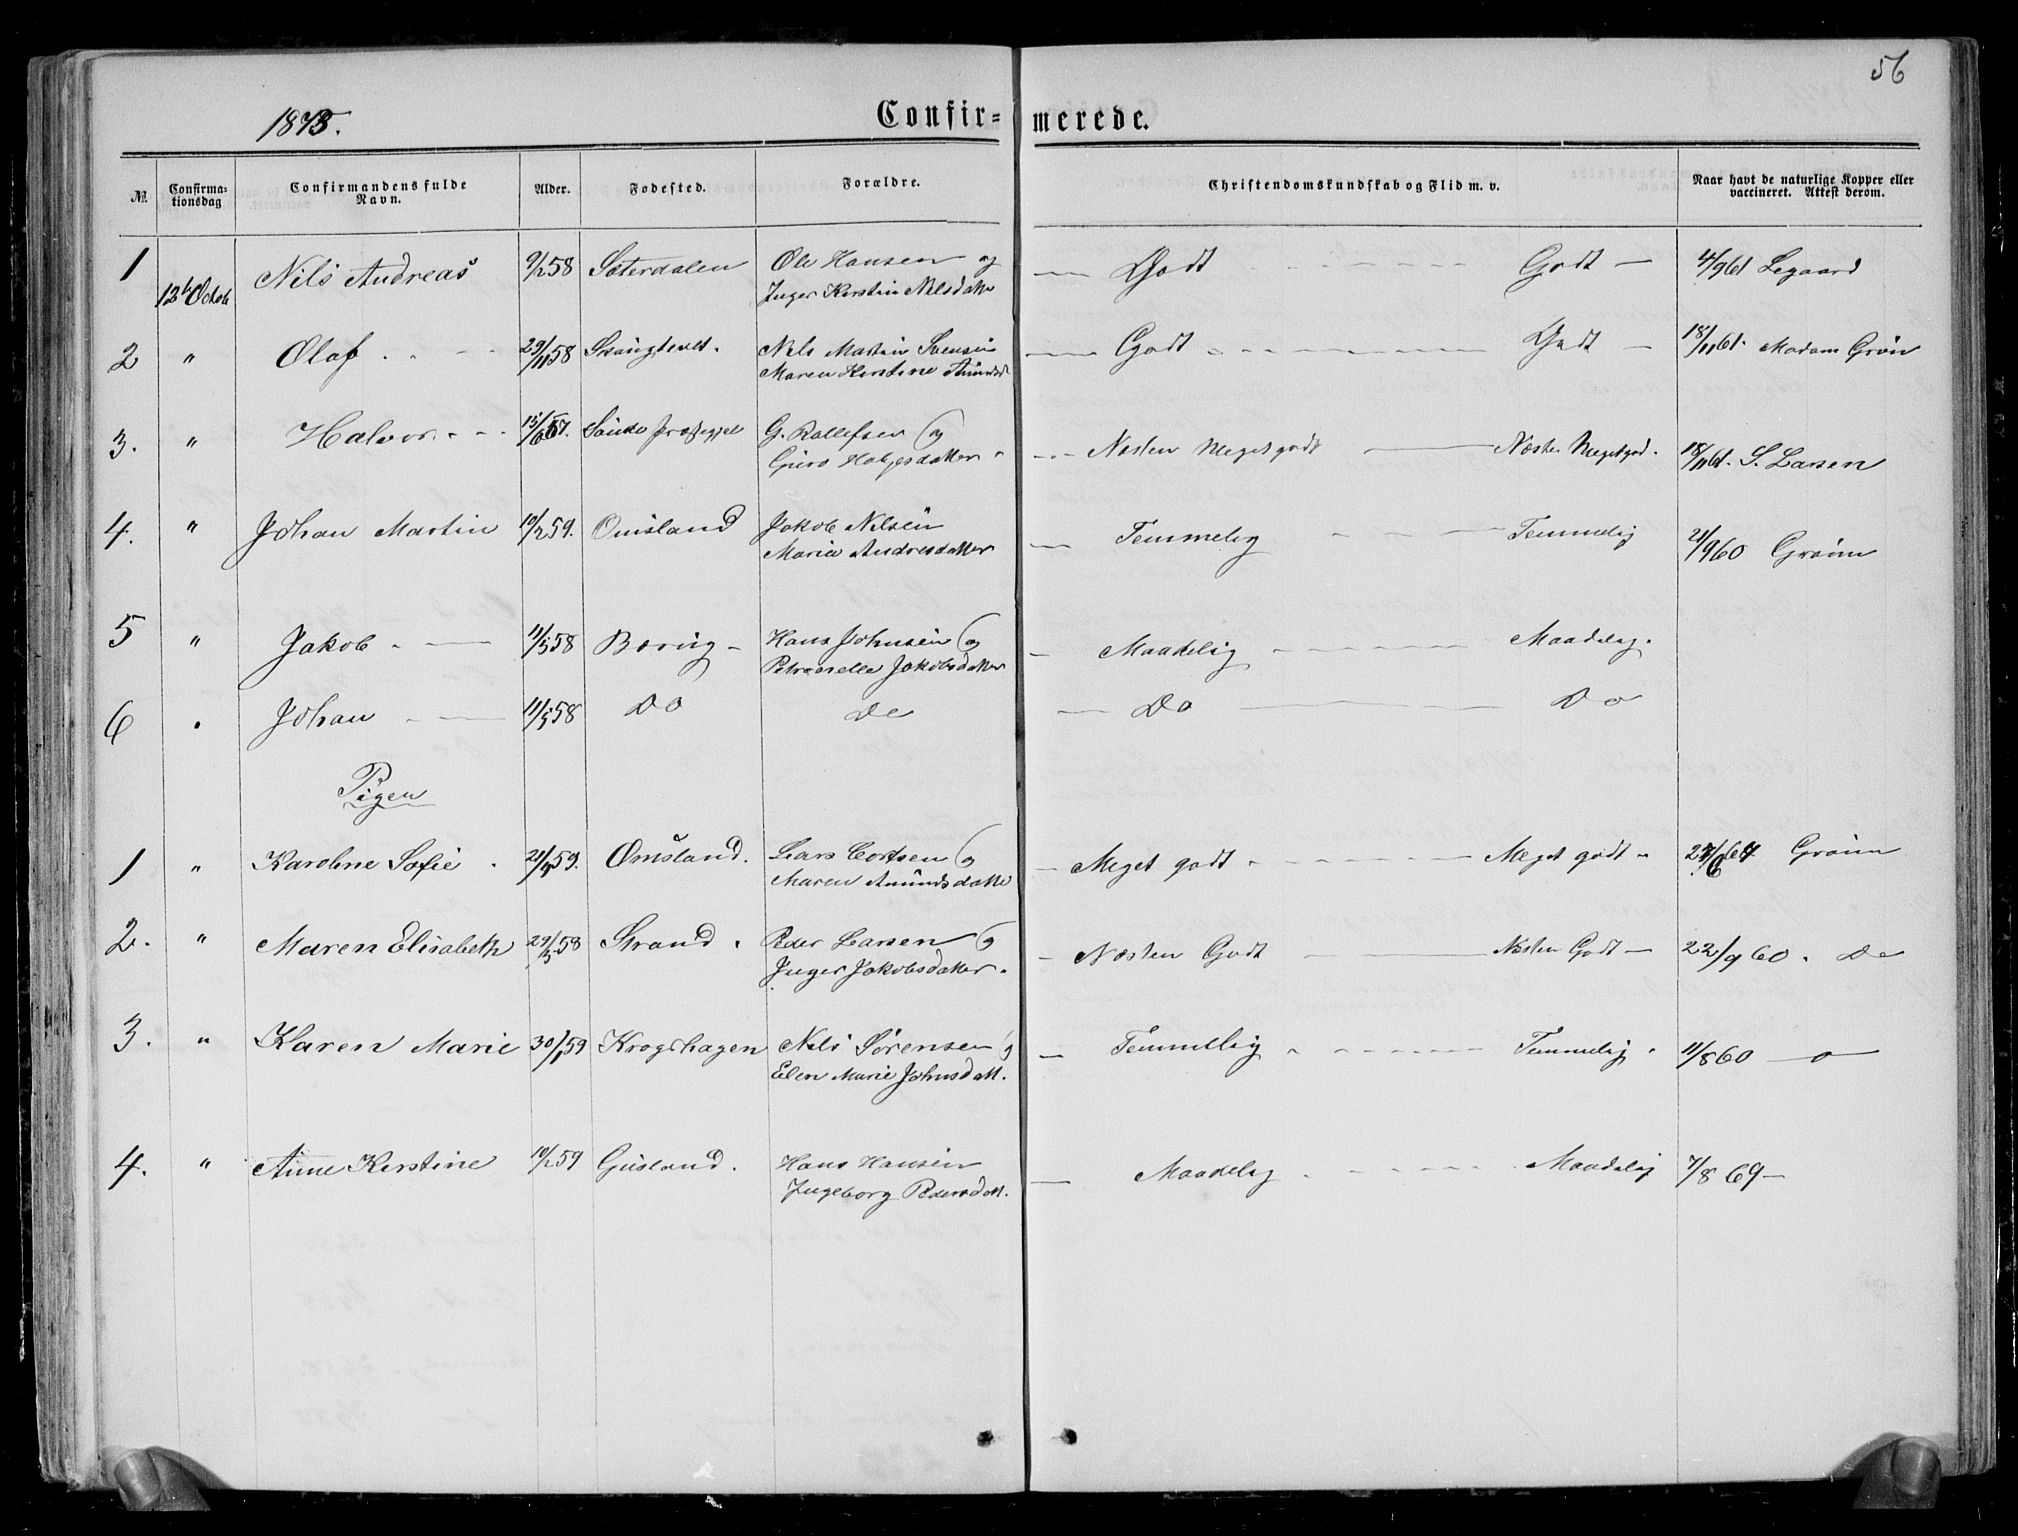 56
1873.
Confir-merede.
№
Confirma-tionsdag
Confirmandens fulde Navn.
Alder.
Fødested.
Forældre.
Christendomskundskab og Flid m. v.
Naar havt de naturlige Kopper eller vaccineret. Attest derom.
1 12te Octob Nils Andreas 9/2 58 Sæterdalen Ole Hansen og — Godt Godt — 4/9 61 Legaard
Inger Kirstin Nilsdatter
2 " Olaf 29/11 58 Nils Martin Svensen — Godt Godt — 18/11 61. Madam Grøn
Maren Kirstine Amunds
3. " Halvor 15/6 57. G. Rollefsen og Næsten Meget godt Næsten Meget god. 18/11 61. S. Larsen
Guro
4. " Johan Martin 10/2 59. Omsland Jakob Nilsen — Temmelig Temmelig 21/9 60 Grønn
Maria Andresdatter
5 " Jakob 11/5 58 Børug Hans Johnsen og — Maadelig Maadelig.
Petronelle Jakobsdatter
6 " Johan 11/5 58 Do Do — Do Do
Pigen
1 " Karoline Sofie 21/4 59. Omsland. Lars Cortsen og — Meget godt Meget godt Grønn
Maren Amundsdatter
2. " Maren Elisabeth 29/3 58 Strand. Peder Larsen og — Næsten Godt Næsten Godt — 22/9 60. Do
Inger Jakobsdatter.
3. " Karen Marie 30/1 59 Krogshagen Nils Sørensen og — Temmelig Temmelig 11/8 60 — o —
Elen Marie Johnsdatt.
4. " Anne Kirstine 10/2 59 Gusland. Hans Hansen — Maadelig Maadelig 7/8 69 —
Ingeborg Pedersdatt.